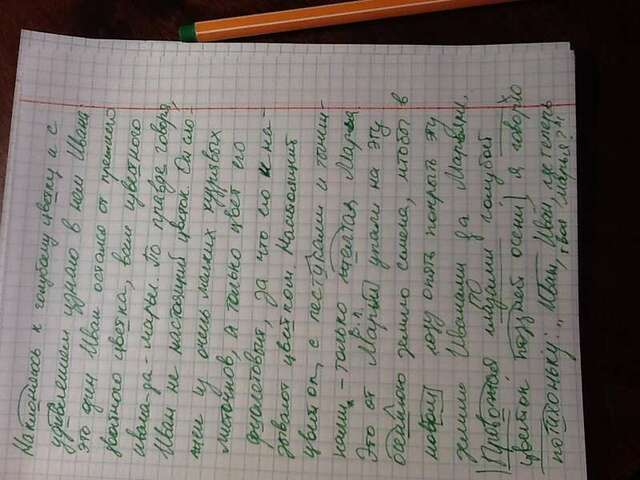 Наклоняюсь к голубому цветку и с
удивлением узнаю в нем Ивана:
это один Иван остался от прежнего
двойного цветка, всем известного
ивана-да-марьи. По правде говоря,
Иван не настоящий цветок. Он сло-
жен из очень мелких кудрявых
листочков, а только цвет его
фиолетовый, за что его и на-
зывают цветком. Настоящий
цветок, с пестиками и тычин-
ками, - только желтая Марья.
Это от Марьи упали на эту
осеннюю землю семена, чтобы в
новом году опять покрыть эту
землю Иванами да Марьями.
Провожая глазами голубой
цветок поздней осени, я говорю
потихоньку: „Иван, Иван, где теперь
твоя Марья?"